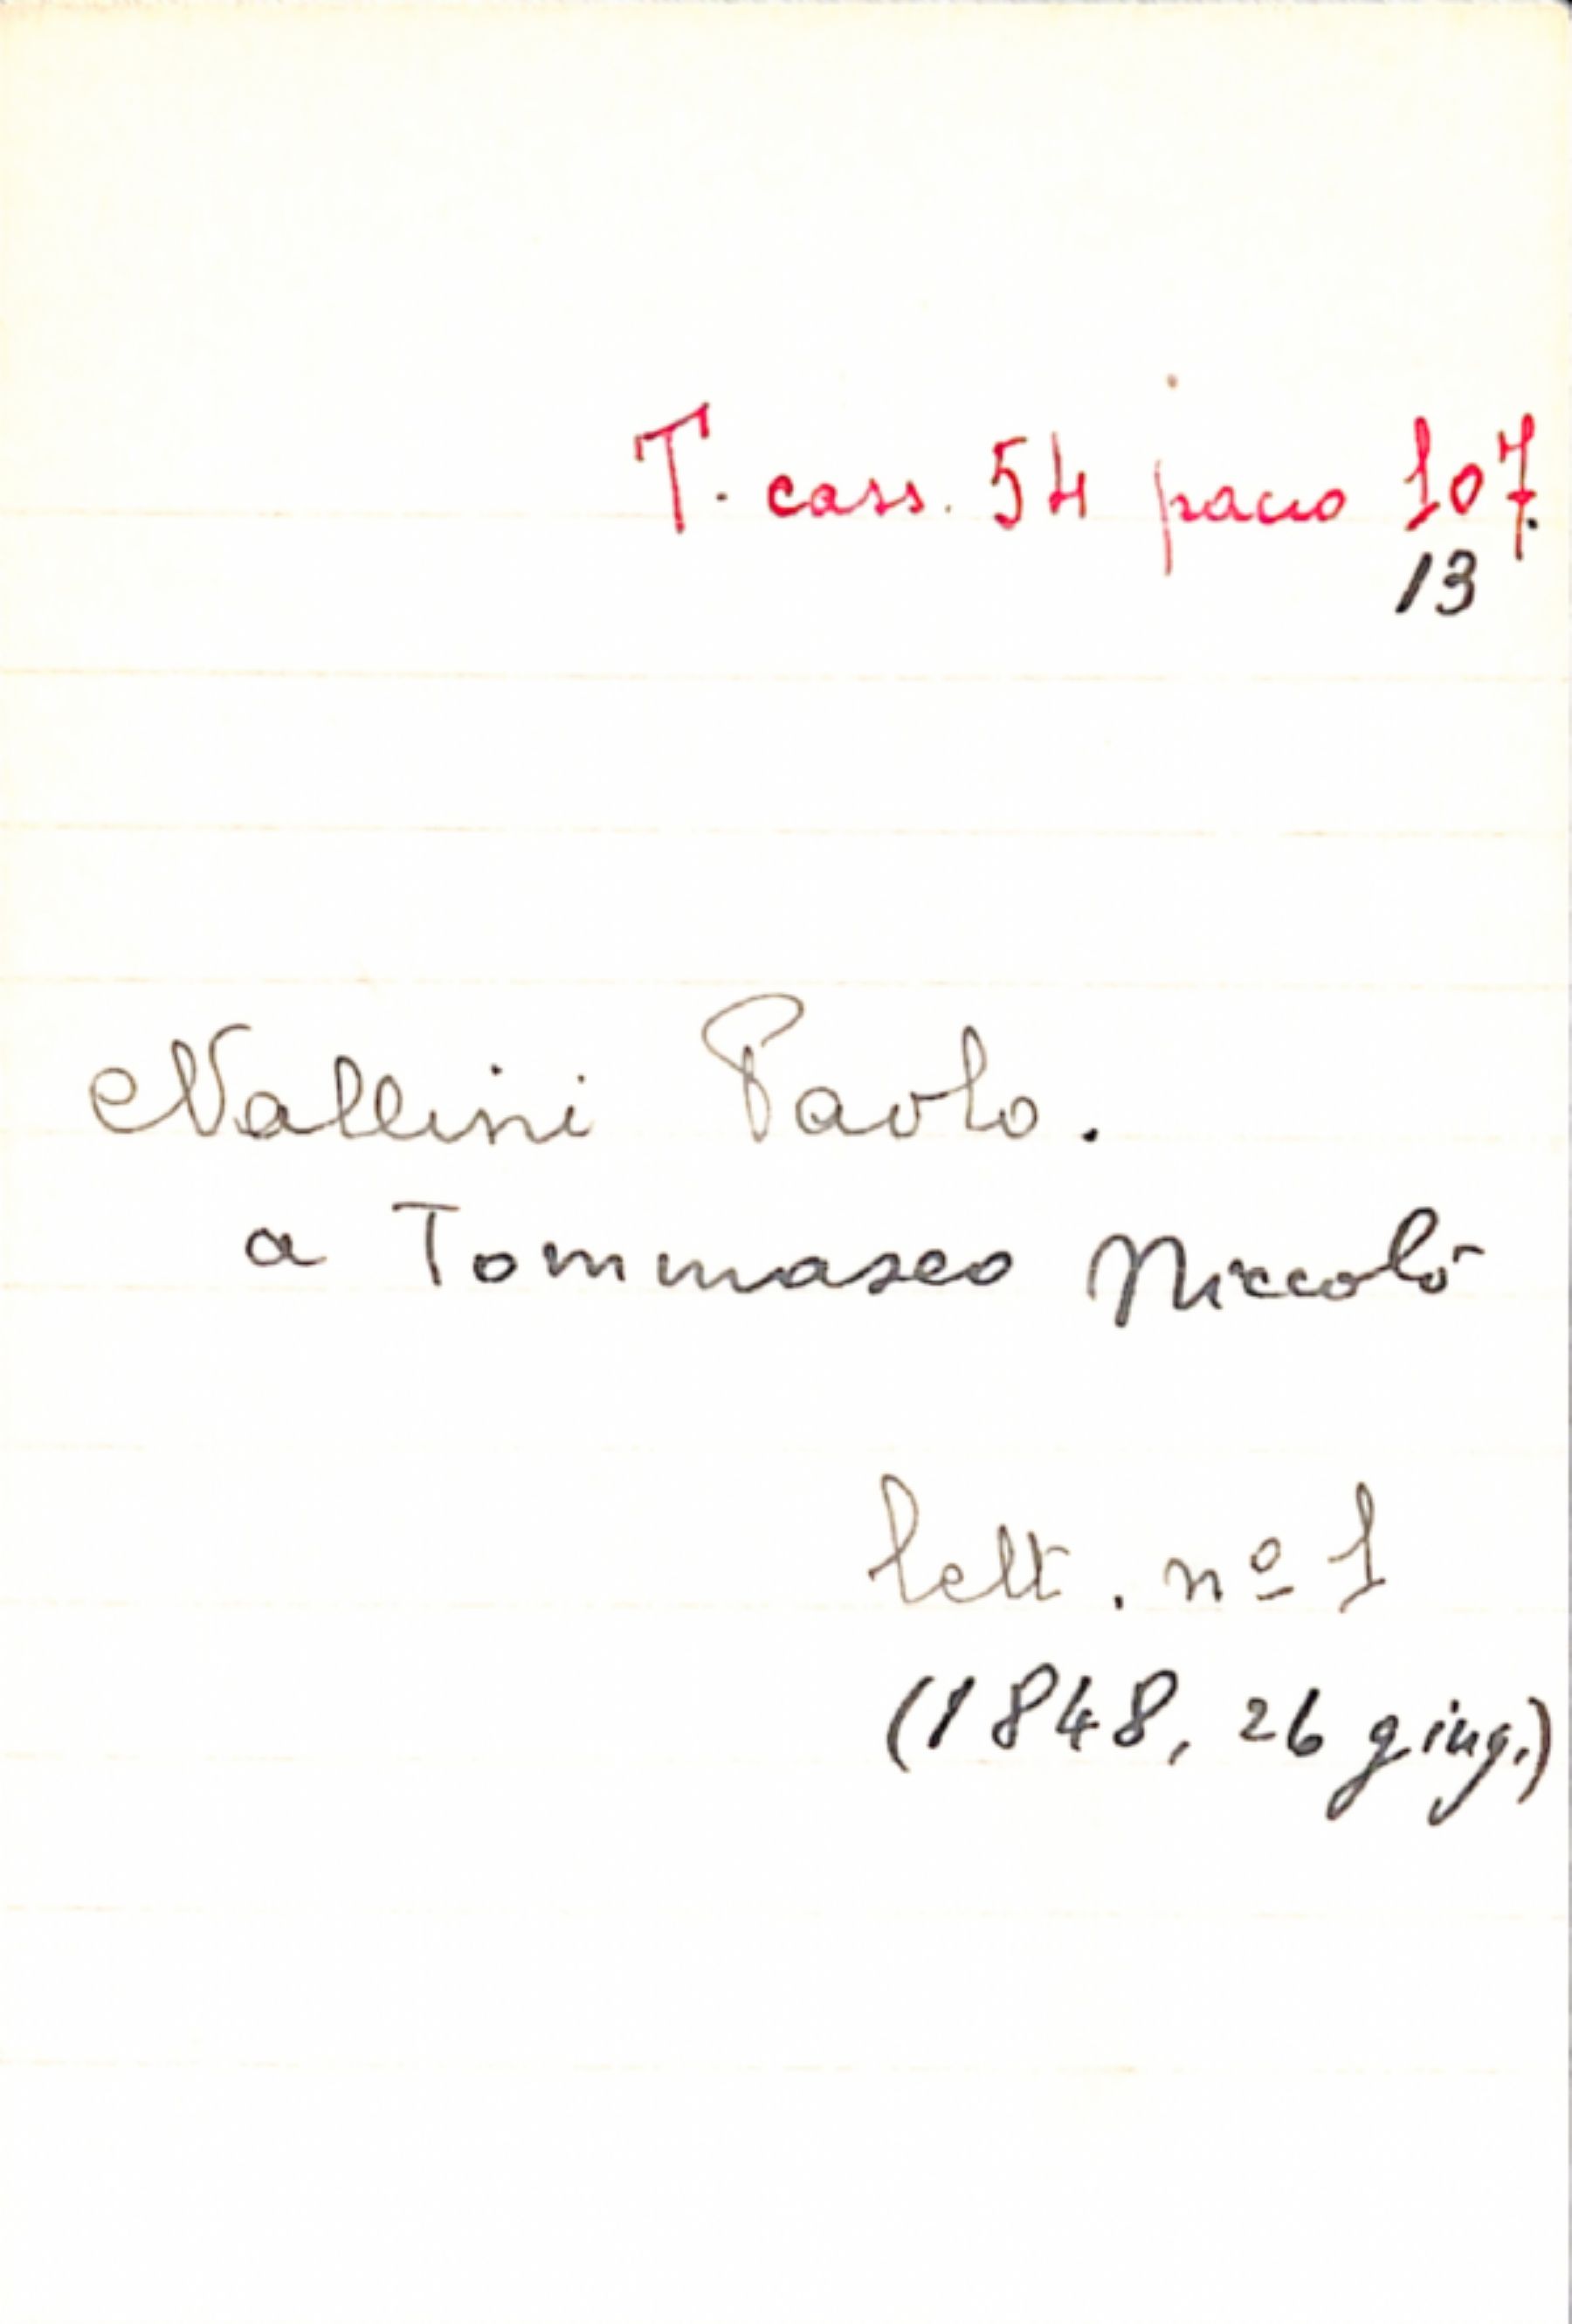 T. cass. 54 pacco 107.
13
Nallini Paolo.
a Tommaseo Niccolò
lett. nº 1
(1848, 26 giug.)